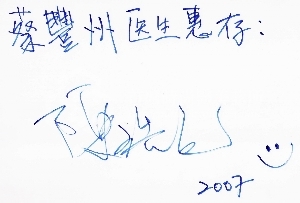 蔡豐州医生惠存:
2007